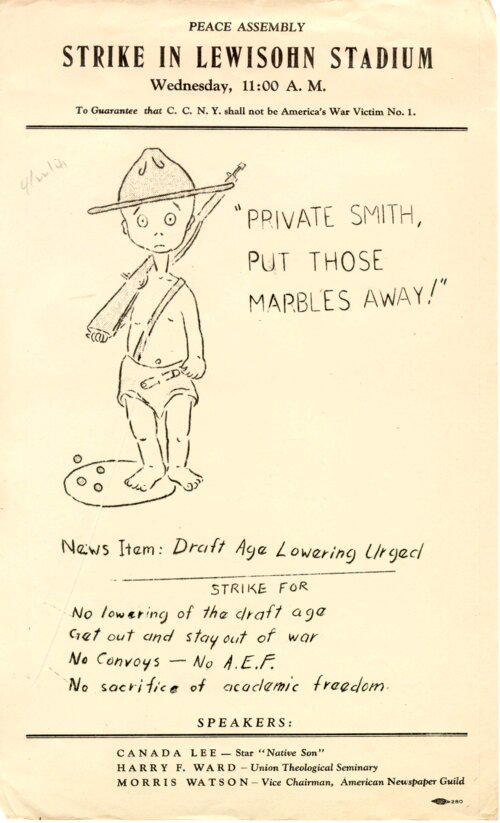 PEACE ASSEMBLY
STRIKE IN LEWISOHN STADIUM
Wednesday, 11:00 A. M.
To Guarantee that C. C. N. Y. shall not be America's War Victim No. 1.
"PRIVATE SMITH,
PUT THOSE
MARBLES AWAY!"
News Item: Draft Age Lowering Urged
STRIKE FOR
No lowering of the draft age
Get out and stay out of war
No Convoys — No A.E.F.
No sacrifice of academic freedom.
SPEAKERS:
CANADA LEE — Star "Native Son"
HARRY F. WARD – Union Theological Seminary
MORRIS WATSON – Vice Chairman, American Newspaper Guild
280